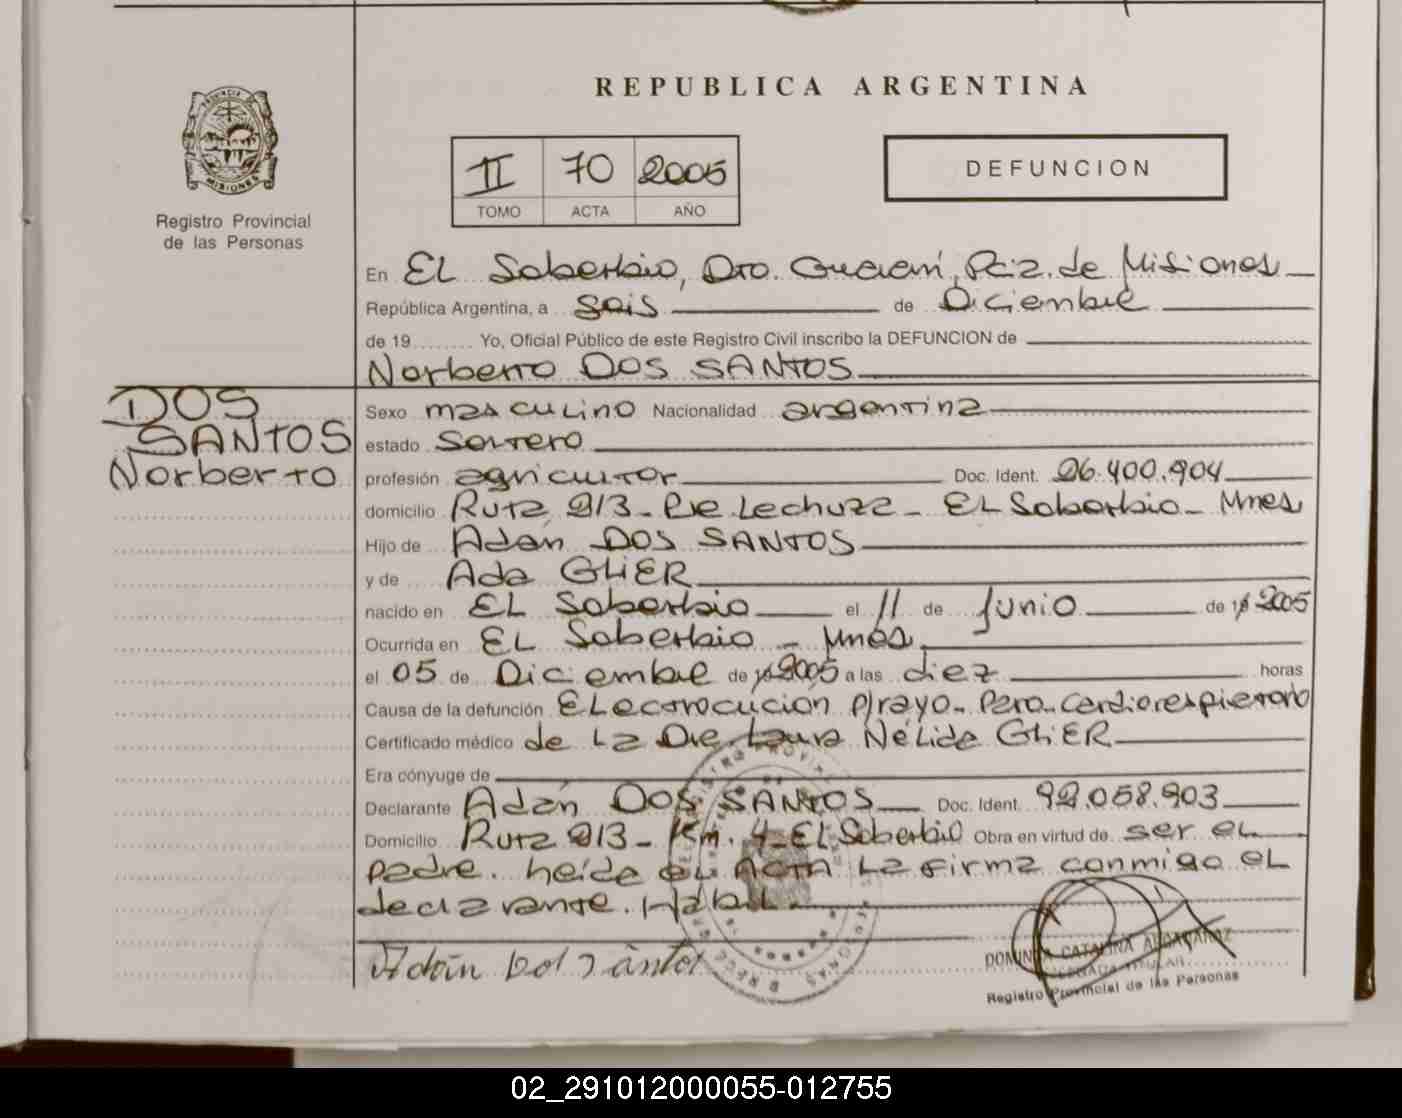 REPUBLICA ARGENTINA
PROVINCIA DE
MISIONES
Registro Provincial
de las Personas
II 70 2005
TOMO ACTA AÑO
DEFUNCION
En EL Soberbio, Dto. Guaraní, Pciz. de Misiones
República Argentina, a Seis de Diciembre
de 19........ Yo, Oficial Público de este Registro Civil inscribo la DEFUNCION de
Norberto DOS SANTOS
DOS
SANTOS
Norberto
Sexo masculino Nacionalidad argentina
estado Soltero
profesión agricultor Doc. Ident. 26.400.904
domicilio Ruta 213 - Lechuza - EL Soberbio - Mnes
Hijo de Adán DOS SANTOS
y de Ada GHIER
nacido en EL Soberbio el 11 de Junio de 19 2005
Ocurrida en EL Soberbio - Mnes
el 05 de Diciembre de 19 2005 a las diez horas
Causa de la defunción Electrocución p/rayo - Paro - cardiorespieratorio
Certificado médico de La Dra. Laura Nélida GHIER
Era cónyuge de
Declarante Adán DOS SANTOS Doc. Ident. 92.058.903
Domicilio Ruta 213 - Km. 4 - EL Soberbio Obra en virtud de ser el
padre. leída el ACTA La firma conmigo el
declarante. Habil
Adán Dos Sántos
DOMINGA CATALINA ALCARAZ
DELEGADA TITULAR
Registro Provincial de las Personas
02_291012000055-012755